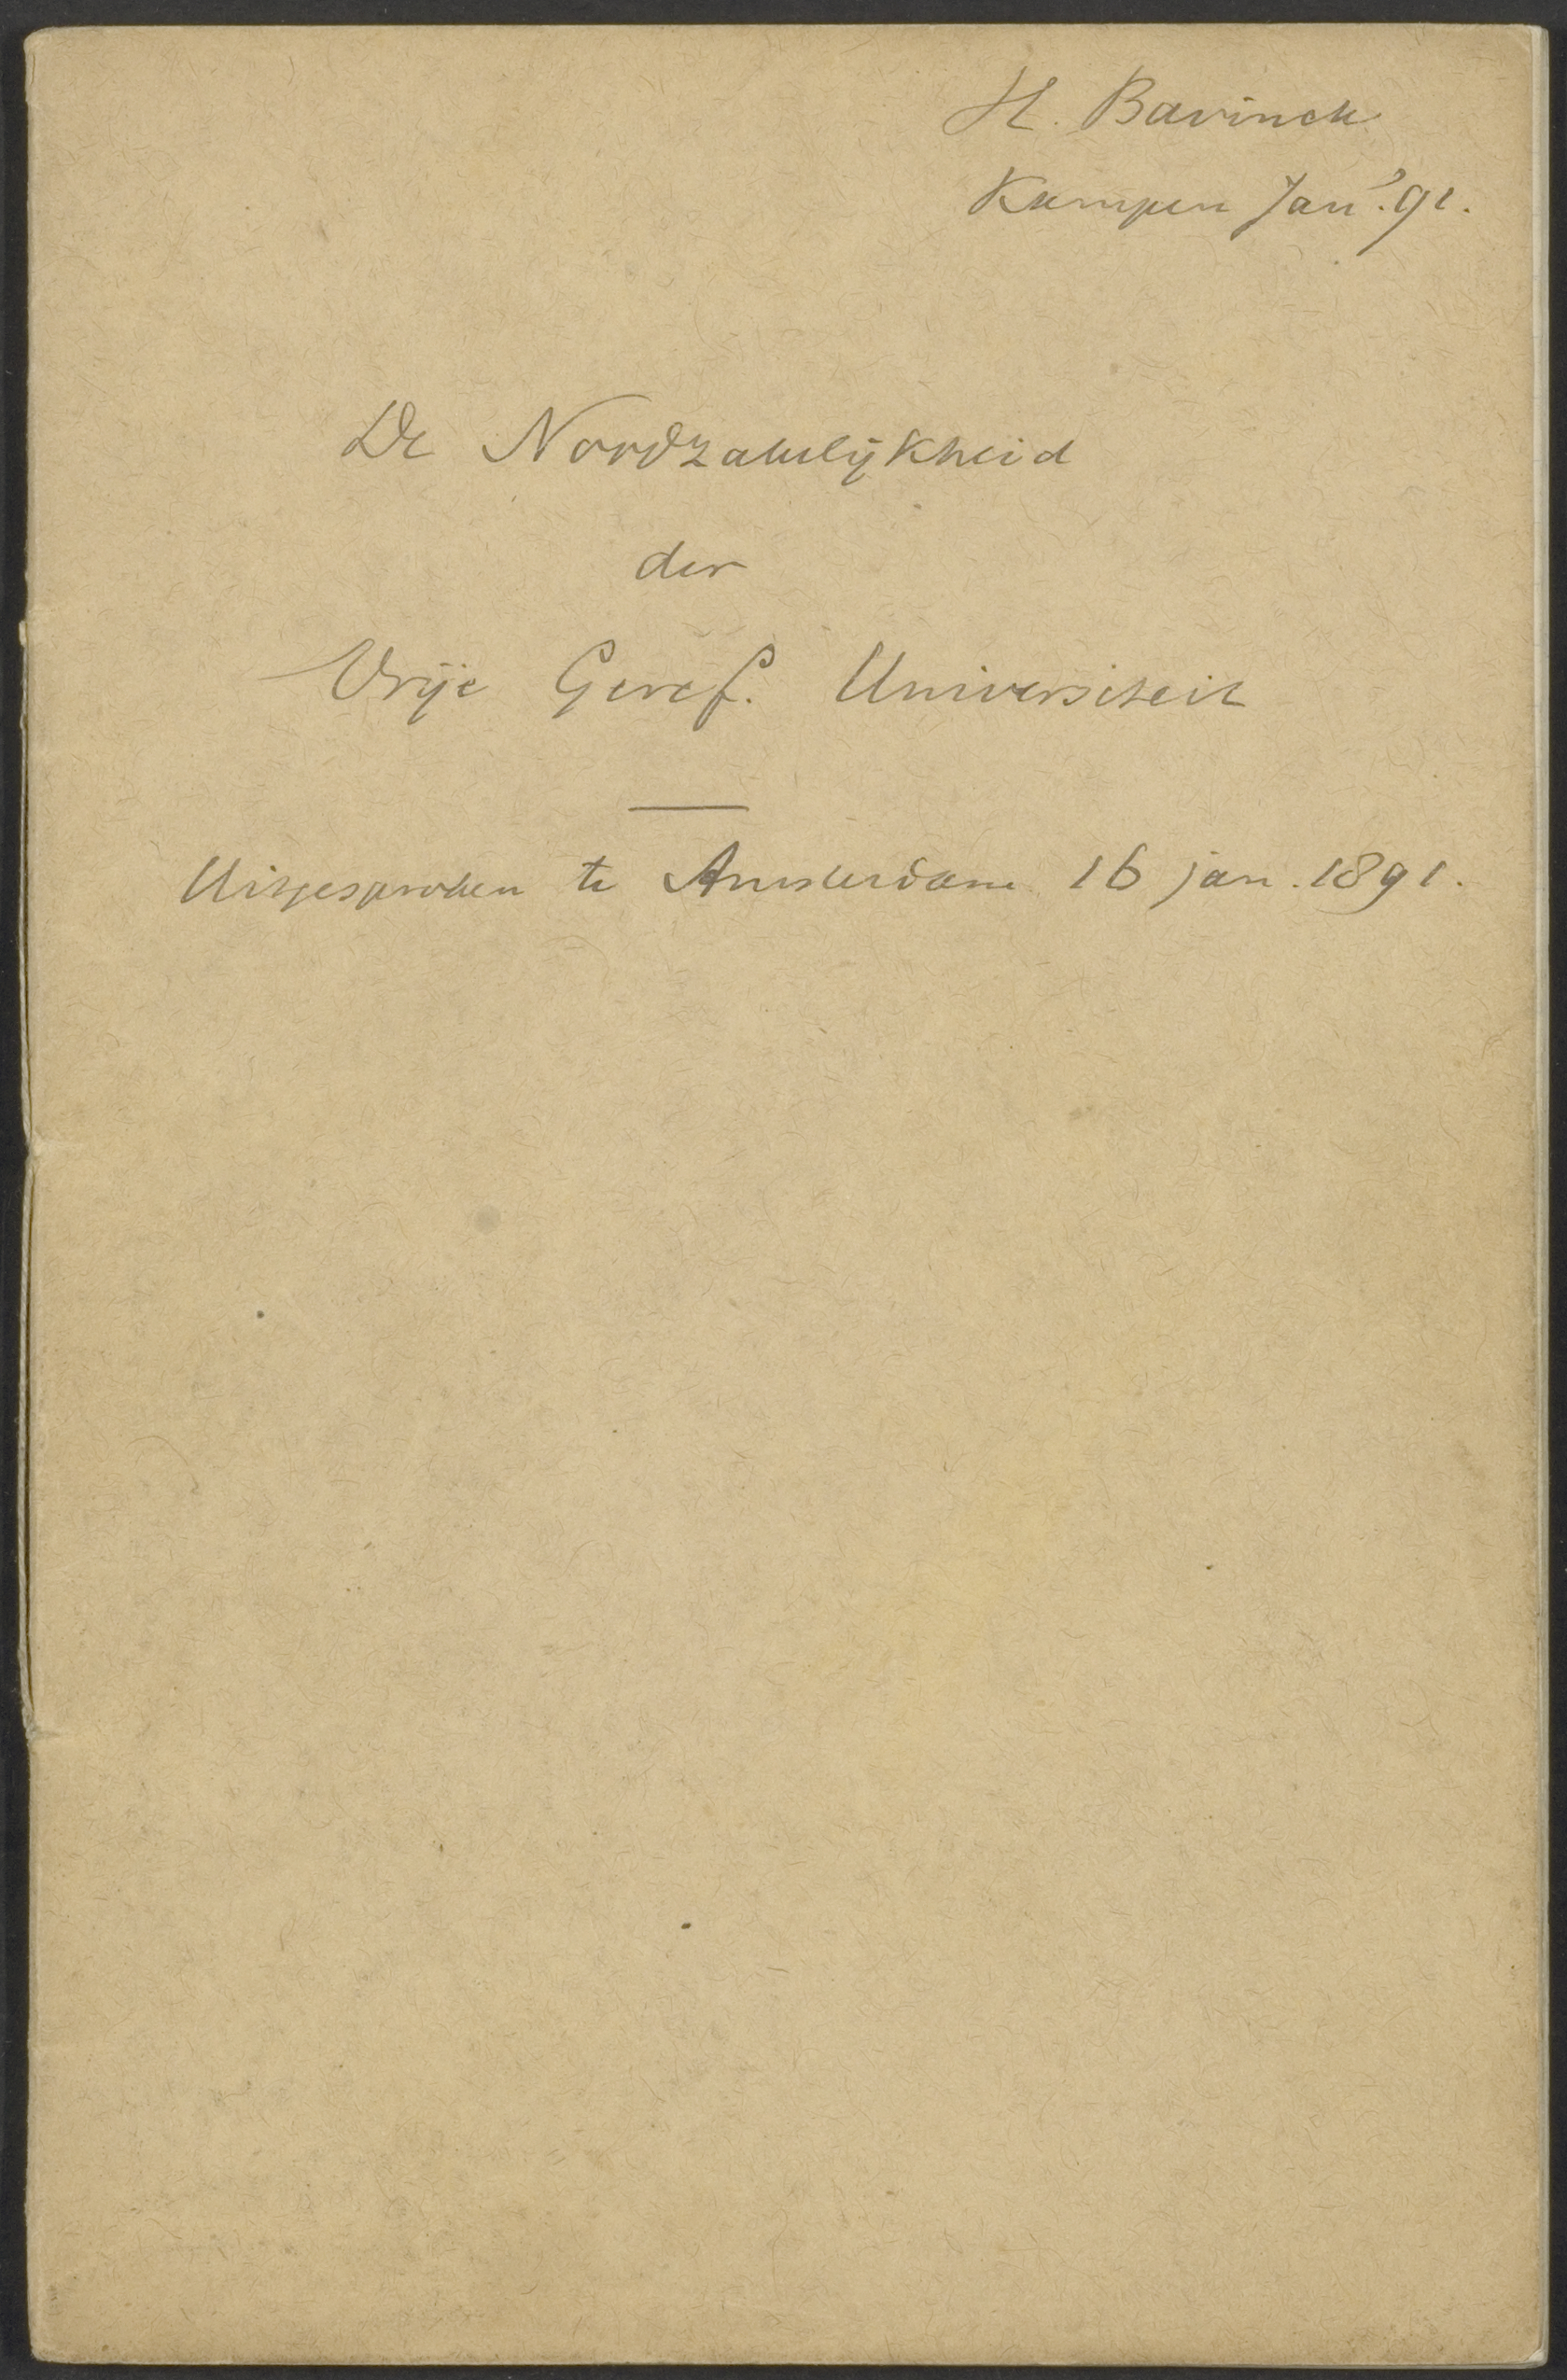 H. Bavinck
Kampen Jan '91.
De Noodzakelijkheid
der
Vrije Geref. Universiteit
Uitgesproken te Amsterdam 16 jan. 1891.